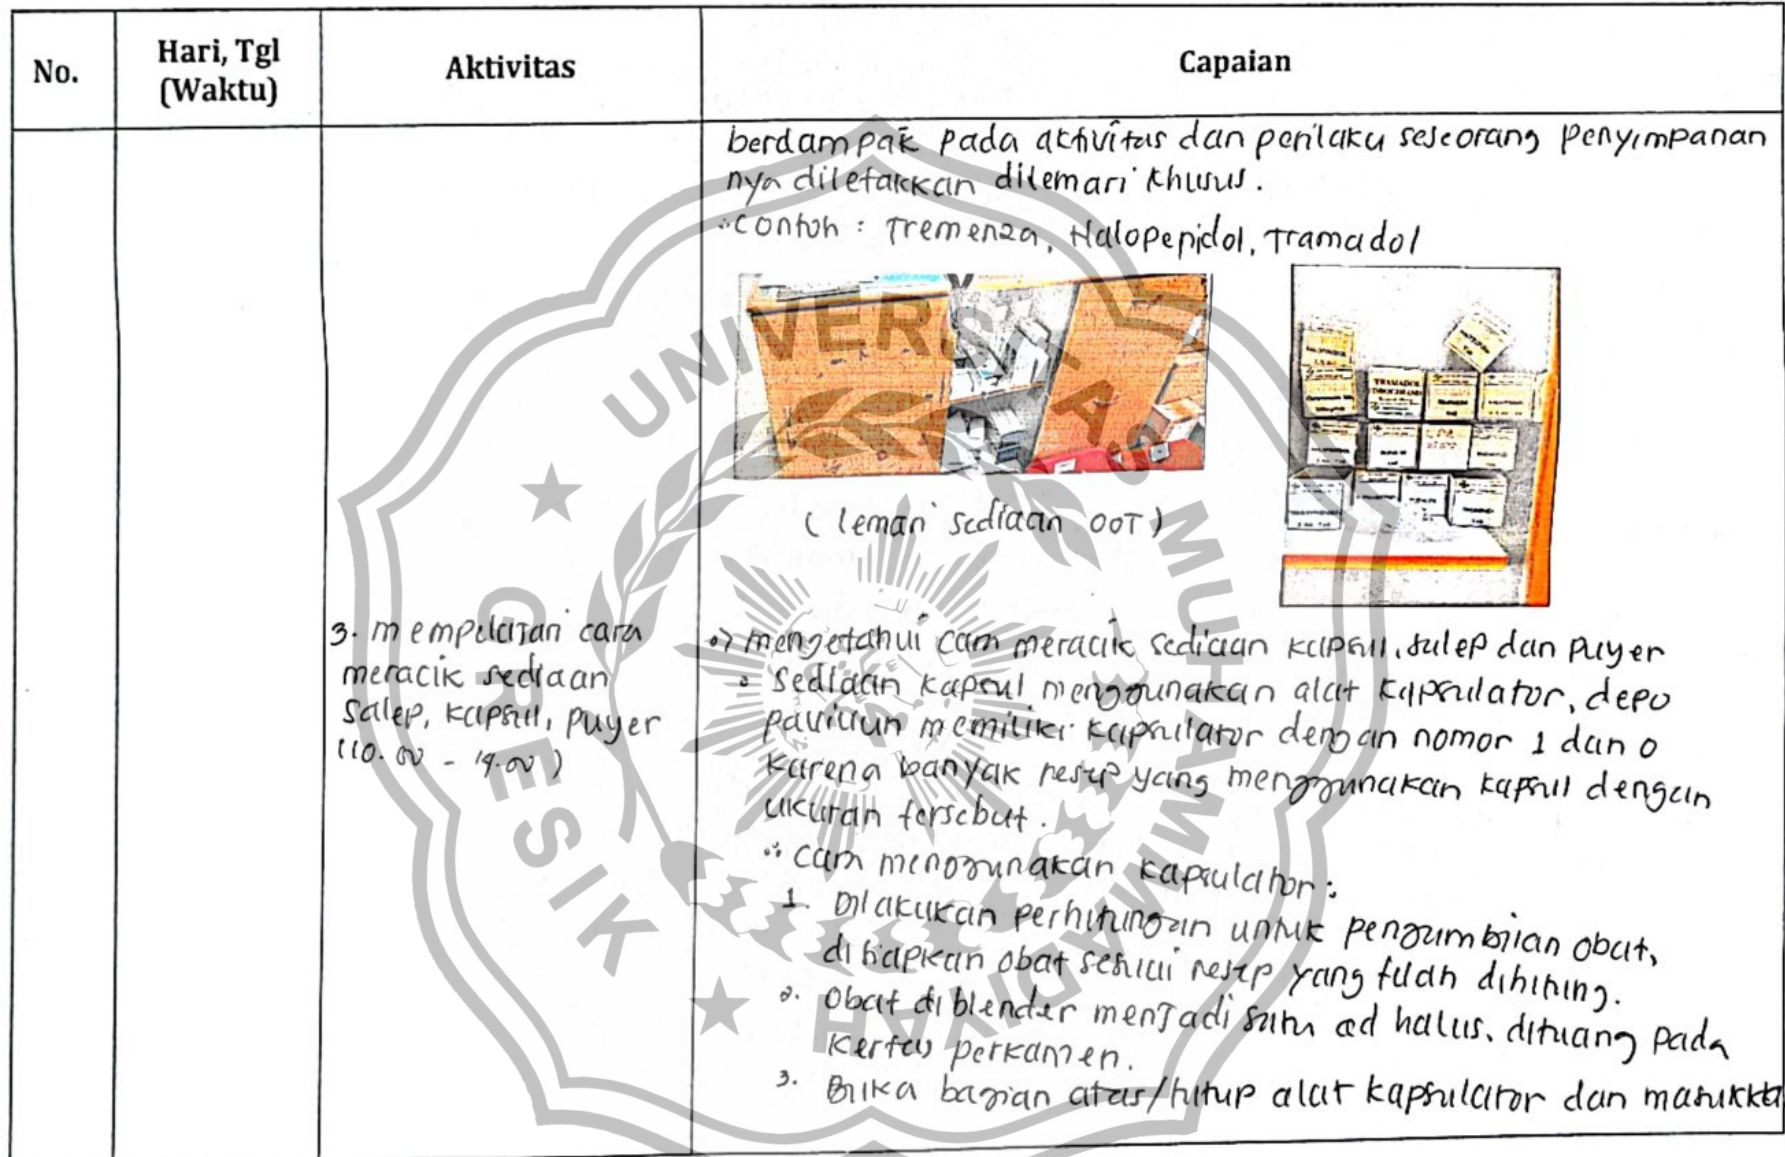 No.
Hari, Tgl
(Waktu)
Aktivitas
Capaian
berdampak pada aktivitas dan perilaku seseorang Penyimpanan
nya diletakkan dilemari khusus.
Contoh : Tremenza, Halopepidol, Tramadol
(lemari sediaan OOT)
3. mempelajari cara
meracik sediaan
Salep, kapsul, puyer
(10.00 - 14.00)
mengetahui cara meracik sediaan kapsul, salep dan puyer
Sediaan kapsul menggunakan alat kapsulator, depo
paviliun memiliki kapsulator dengan nomor 1 dan 0
karena banyak resep yang menggunakan kapsul dengan
ukuran tersebut.
Cara menggunakan kapsulator :
1. Dilakukan perhitungan untuk pengambilan obat,
disiapkan obat sesuai resep yang telah dihitung.
2. Obat diblender menjadi satu ad halus, dituang pada
kertas perkamen.
3. Buka bagian atas/tutup alat kapsulator dan masukka
UNIVERSITAS MUHAMMADIYAH
GRESIK
TRAMADOL